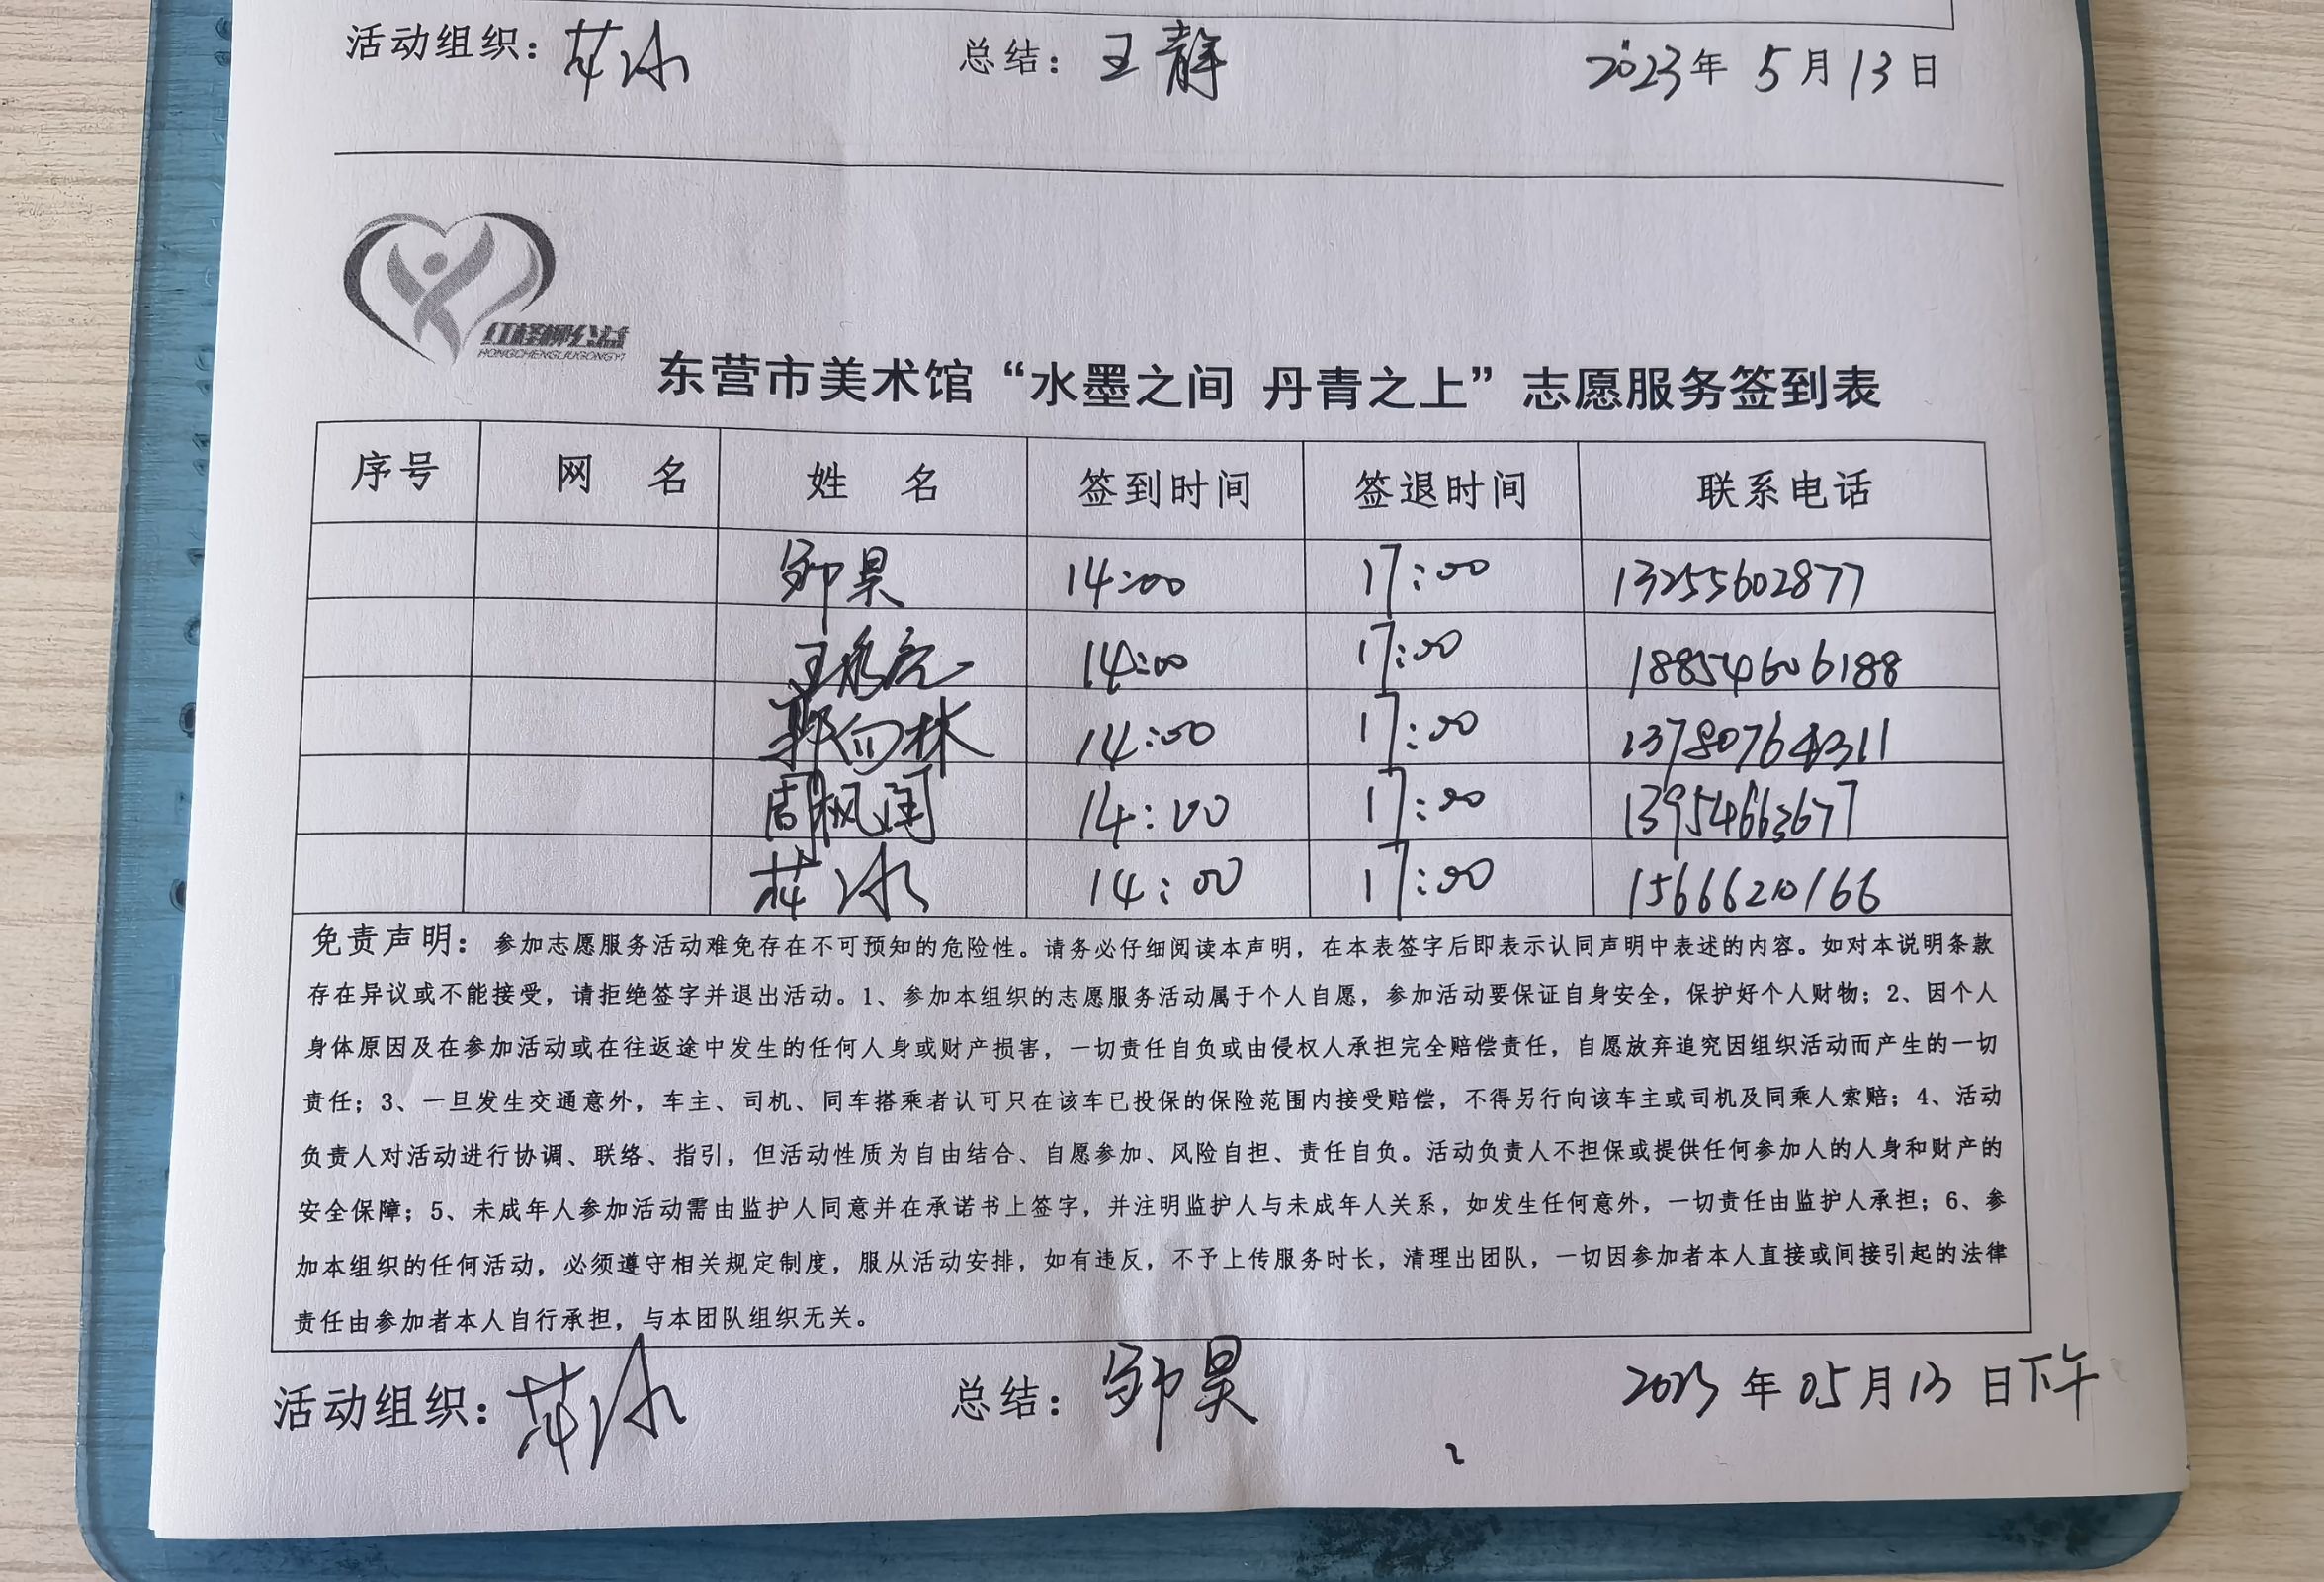 活动组织： 总结：王静 2023年5月13日
红柽柳公益
HONGCHENGLIUGONGYI
东营市美术馆“水墨之间 丹青之上”志愿服务签到表
序号 网 名 姓 名 签到时间 签退时间 联系电话
邹昊 14:00 17:00 13255602877
14:00 17:00 18854606188
郭向林 14:00 17:00 13780764311
周枫闰 14:00 17:00 13954663677
14:00 17:00 15666210166
免责声明：参加志愿服务活动难免存在不可预知的危险性。请务必仔细阅读本声明，在本表签字后即表示认同声明中表述的内容。如对本说明条款
存在异议或不能接受，请拒绝签字并退出活动。1、参加本组织的志愿服务活动属于个人自愿，参加活动要保证自身安全，保护好个人财物；2、因个人
身体原因及在参加活动或在往返途中发生的任何人身或财产损害，一切责任自负或由侵权人承担完全赔偿责任，自愿放弃追究因组织活动而产生的一切
责任；3、一旦发生交通意外，车主、司机、同车搭乘者认可只在该车已投保的保险范围内接受赔偿，不得另行向该车主或司机及同乘人索赔；4、活动
负责人对活动进行协调、联络、指引，但活动性质为自由结合、自愿参加、风险自担、责任自负。活动负责人不担保或提供任何参加人的人身和财产的
安全保障；5、未成年人参加活动需由监护人同意并在承诺书上签字，并注明监护人与未成年人关系，如发生任何意外，一切责任由监护人承担；6、参
加本组织的任何活动，必须遵守相关规定制度，服从活动安排，如有违反，不予上传服务时长，清理出团队，一切因参加者本人直接或间接引起的法律
责任由参加者本人自行承担，与本团队组织无关。
活动组织： 总结：邹昊 2023年05月13日下午